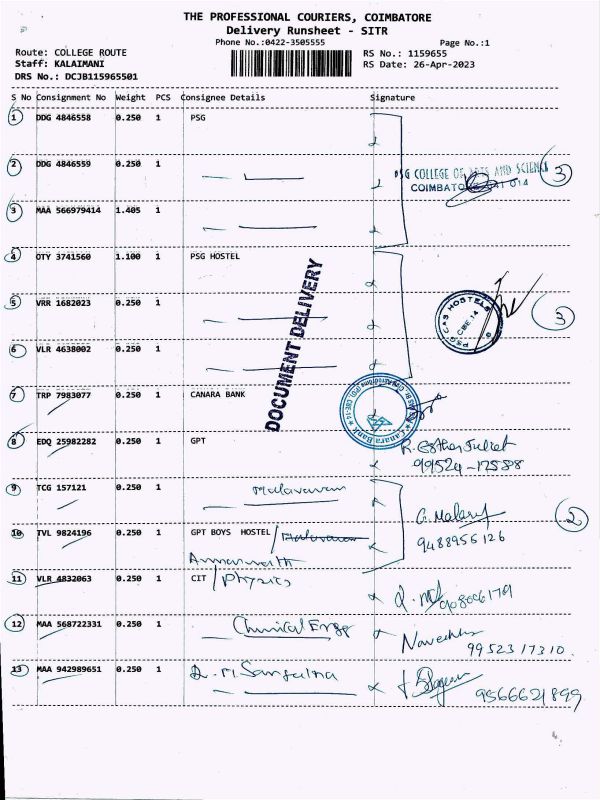 THE PROFESSIONAL COURIERS, COIMBATORE
Delivery Runsheet - SITR
Phone No.:0422-3505555 Page No.:1
Route: COLLEGE ROUTE RS No.: 1159655
Staff: KALAIMANI RS Date: 26-Apr-2023
DRS No.: DCJB115965501
S No Consignment No Weight PCS Consignee Details Signature
1 DDG 4846558 0.250 1 PSG
2 DDG 4846559 0.250 1
PSG COLLEGE OF ARTS AND SCIENCE 3
COIMBATORE 641 014
3 MAA 566979414 1.405 1
4 OTY 3741560 1.100 1 PSG HOSTEL
DOCUMENT DELIVERY
5 VRR 1682023 0.250 1
PSG CAS HOSTELS CBE-14 3
6 VLR 4638002 0.250 1
7 TRP 7983077 0.250 1 CANARA BANK
Canara Bank
8 EDQ 25982282 0.250 1 GPT R. Esther Juliet
99524-17588
9 TCG 157121 0.250 1 Malavavan
G. Malar 2
10 TVL 9824196 0.250 1 GPT BOYS HOSTEL / 9488956126
11 VLR 4832063 0.250 1 CIT / Physics
908006179
12 MAA 568722331 0.250 1 Chemical Engg
9952317310.
13 MAA 942989651 0.250 1
9566621899